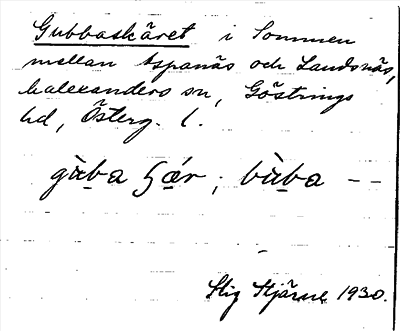 Gubbaskäret i Sommen
mellan Aspanäs och Landsnäs,
Malexanders sn, Göstrings
hd, Österg. l.
gùba ʂæ̀r ; bùba – –
Stig Stjärne 1930.